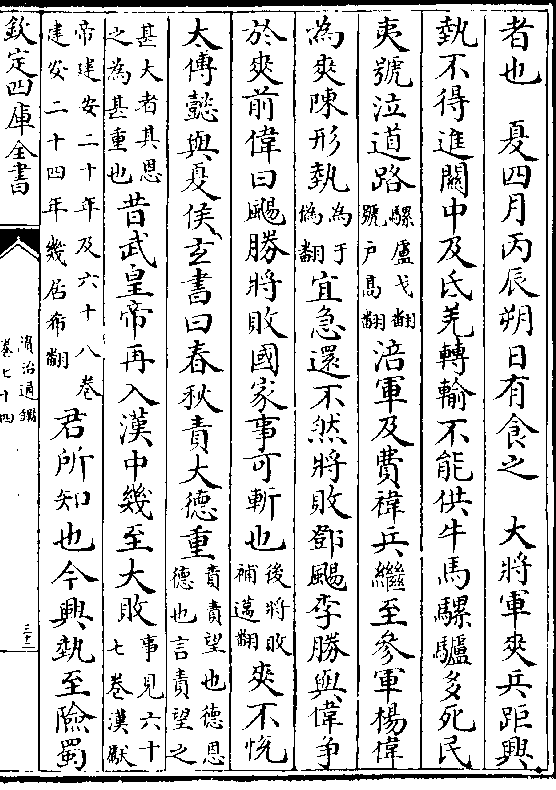 者也　夏四月丙辰朔日有食之　大將軍爽兵距興
埶不得進關中及氐羌轉輸不能供牛馬騾驢多死民
夷號泣道路
騾盧戈翻
號戶高翻
涪軍及費禕兵繼至參軍楊偉
為爽陳形埶
為于
偽翻
宜急還不然將敗鄧颺李勝與偉爭
於爽前偉曰颺勝將敗國家事可斬也
後將敗
補邁翻
爽不恱
太傅懿與夏侯玄書曰春秋責大德重
責責望也德恩
德也言責望之
甚大者其恩
之為甚重也
昔武皇帝再入漢中幾至大敗
事見六十
七卷漢獻
帝建安二十年及六十八卷
建安二十四年幾居希翻
君所知也今興埶至險蜀
欽定四庫全書
資治通鑑
卷七十四